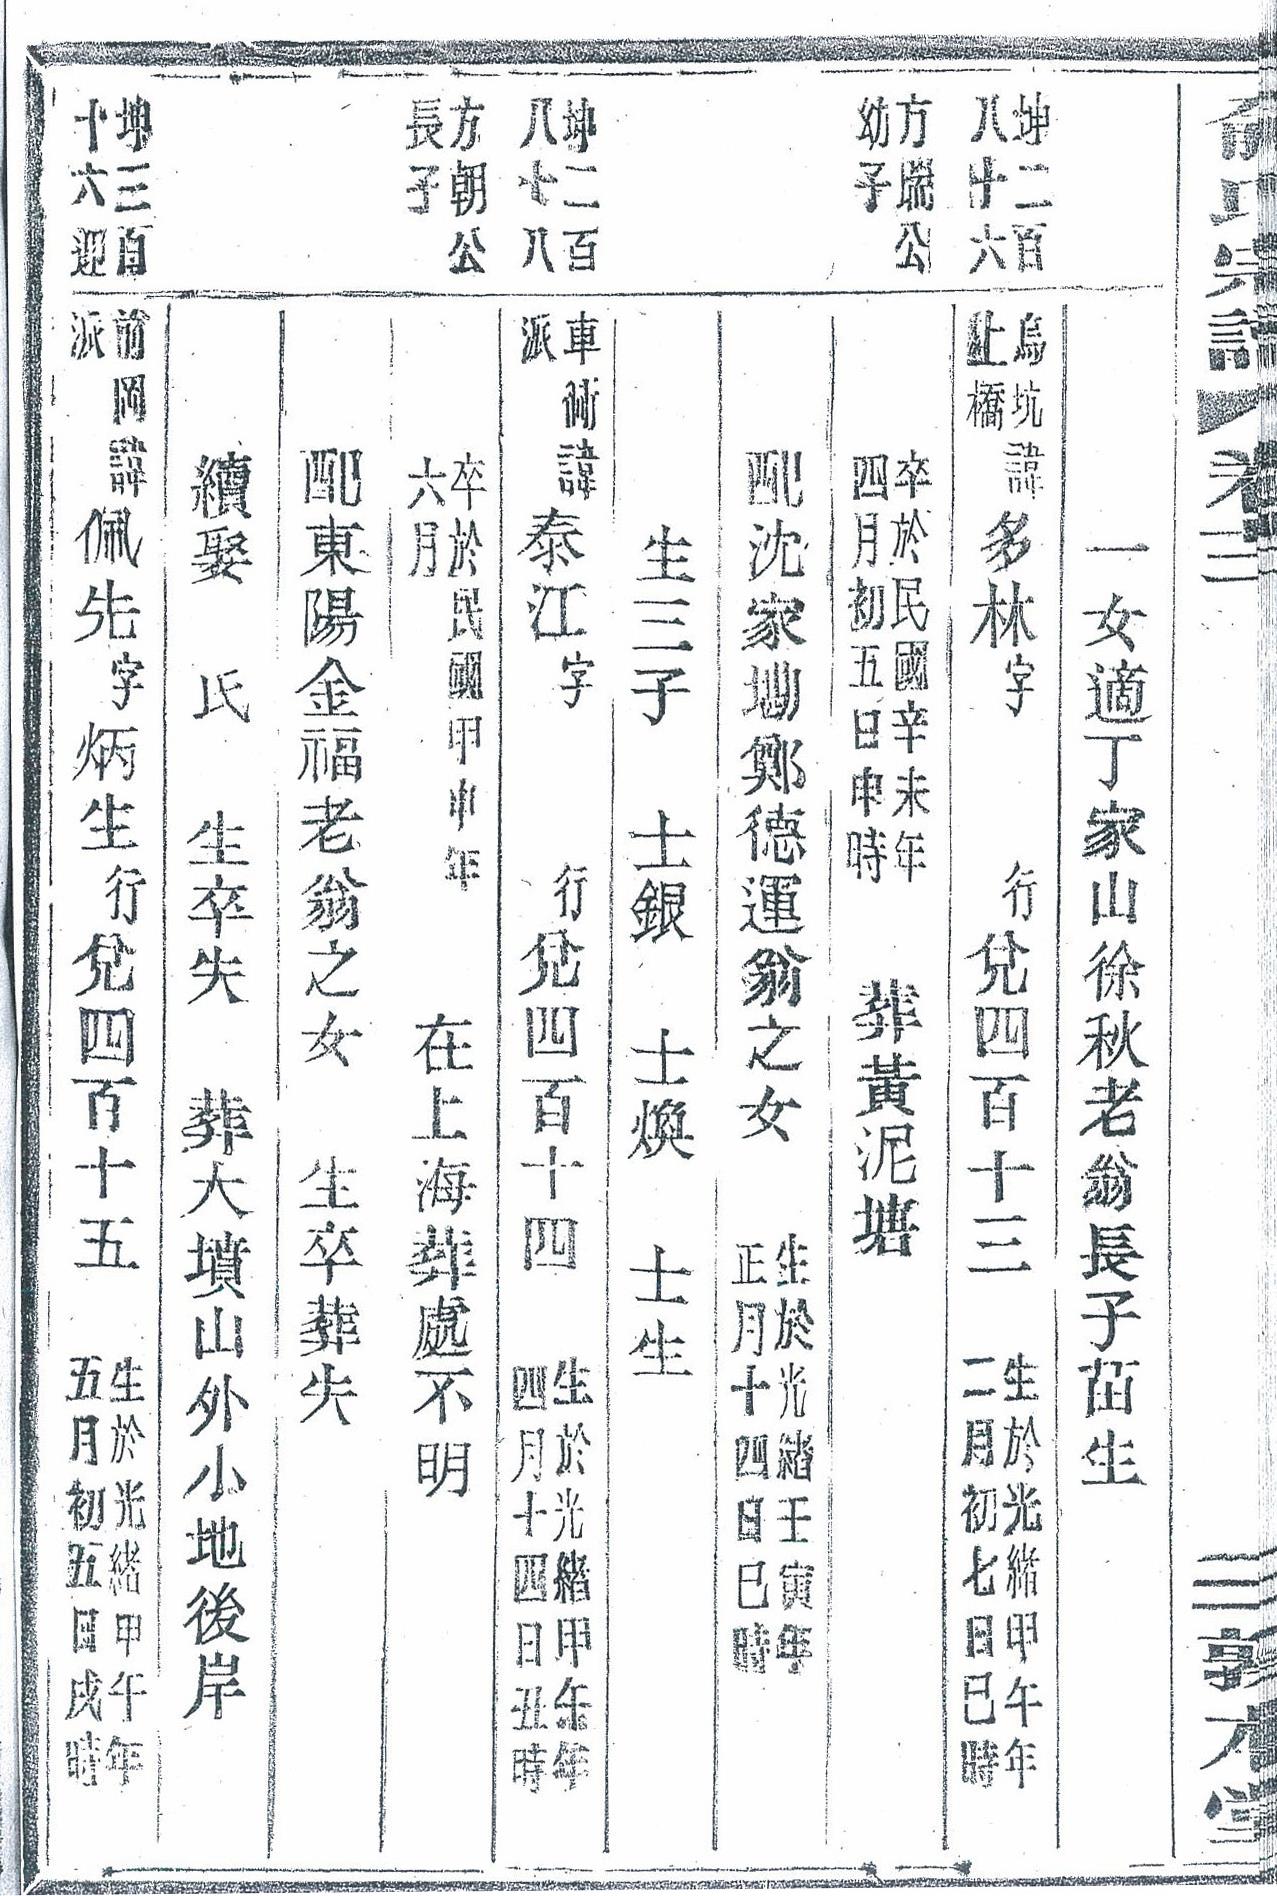 俞氏宗譜 卷三 三 敦本堂
一女適丁家山徐秋老翁長子茁生
坤二百
八十六
烏坑
上橋
諱多林字 行兌四百十三
生於光緒甲午年
二月初七日巳時
方瑞公
幼子
卒於民國辛未年
四月初五日申時
葬黃泥塘
配沈家坳鄭德運翁之女
生於光緒壬寅年
正月十四日巳時
生三子 士銀 士煥 士生
坤二百
八十八
車衕
派
諱泰江字 行兌四百十四
生於光緒甲午年
四月十四日丑時
方朝公
長子
卒於民國甲申年
六月
在上海葬處不明
配東陽金福老翁之女 生卒葬失
續娶 氏 生卒失 葬大墳山外小地後岸
坤三百
十六迎
前岡
派
諱佩先字炳生行兌四百十五
生於光緒甲午年
五月初五日戌時